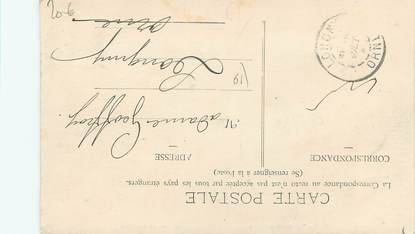 CARTE POSTALE
La Correspondance au recto n'est pas acceptée par tous les pays étrangers.
(Se renseigner à la Poste)
CORRESPONDANCE
ADRESSE
Madame Geoffroy.
Longny
Orne
19
206
ORNE